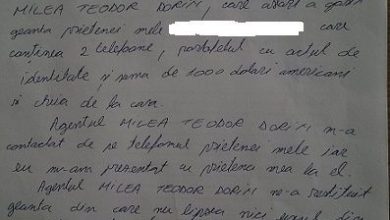 MILEA TEODOR DORIN, care astăzi a găsit
geanta prietenei mele care
conținea 2 telefoane, portofelul cu actul de
identitate și suma de 1000 dolari americani
și cheia de la casă.
Agentul MILEA TEODOR DORIN m-a
contactat de pe telefonul prietenei mele iar
eu m-am prezentat cu prietena mea la el.
Agentul MILEA TEODOR DORIN ne-a restituit
geanta din care nu lipsea nici